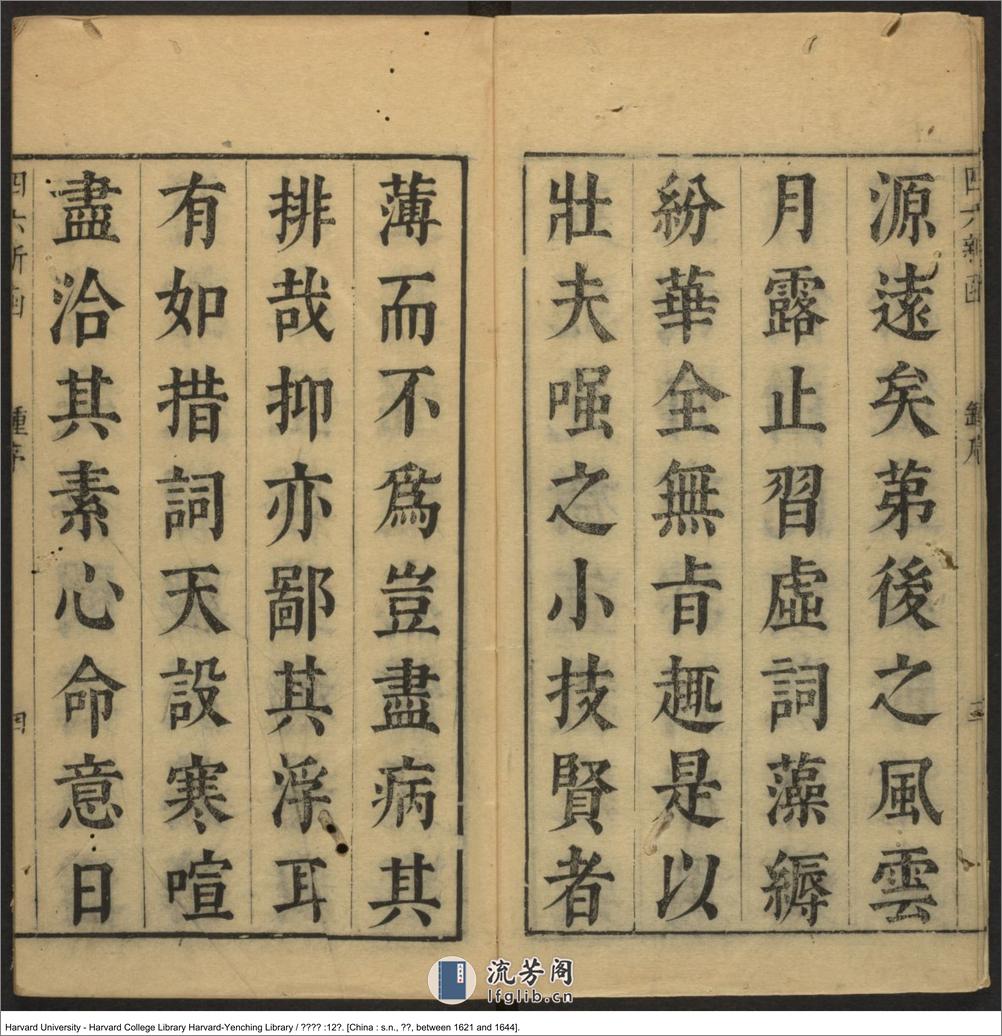 四六新函 鍾序 三
源遠矣苐後之風雲
月露止習虛詞藻縟
紛華全無㫖趣是以
壯夫嗤之小技賢者
薄而不為豈盡病其
排哉抑亦鄙其浮耳
有如措詞天設寒喧
盡洽其素心命意日
四六新函 鍾序 四
流芳阁
lfglib.cn
Harvard University - Harvard College Library Harvard-Yenching Library / ???? :12?. [China : s.n., ??, between 1621 and 1644].